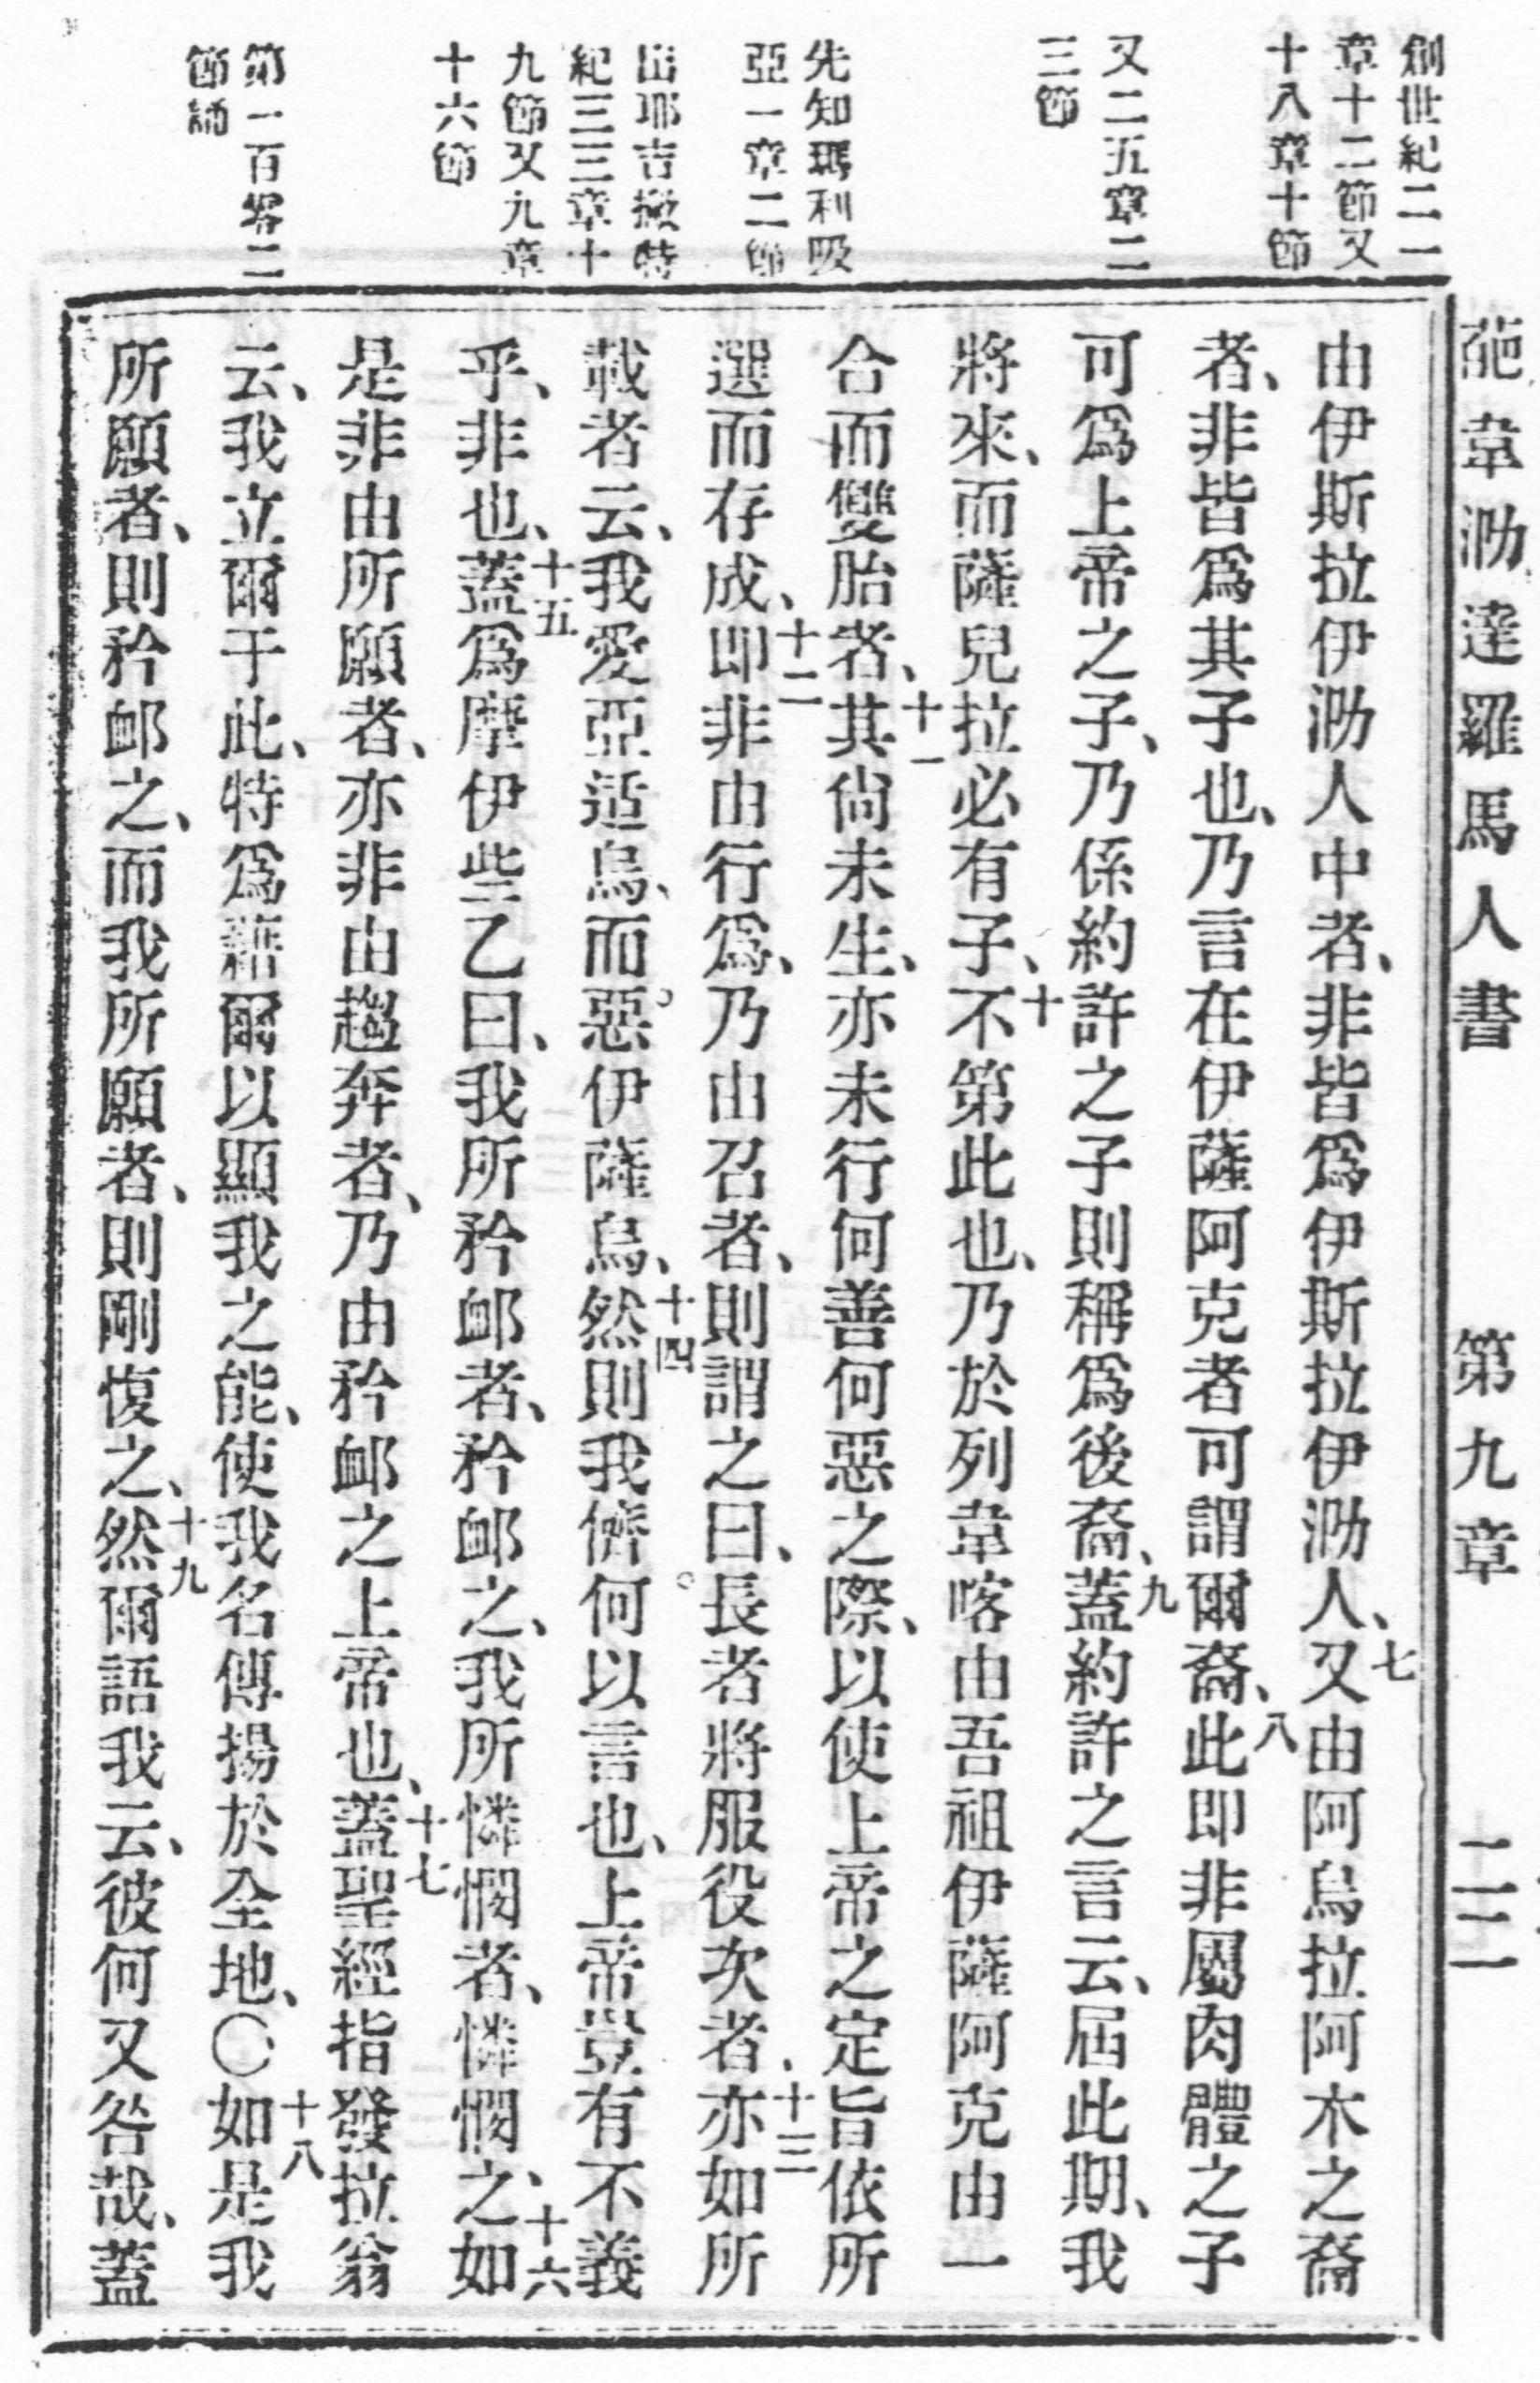 創世紀二一
章十二節又
十八章十節
又二五章二
三節
先知瑪利吸
亞一章二節
出耶吉撇特
紀三三章十
九節又九章
十六節
第一百零二
節誦
葩韋泐達羅馬人書 第九章 二二
由伊斯拉伊泐人中者、非皆爲伊斯拉伊泐人、七又由阿烏拉阿木之裔
者、非皆爲其子也、乃言在伊薩阿克者可謂爾裔、八此即非屬肉體之子
可爲上帝之子、乃係約許之子則稱爲後裔、九蓋約許之言云、屆此期、我
將來、而薩兒拉必有子、十不第此也、乃於列韋喀由吾祖伊薩阿克由一
合而雙胎者、十一其尙未生、亦未行何善何惡之際、以使上帝之定旨依所
選而存成、十二即非由行爲、乃由召者、則謂之曰、長者將服役次者、十三亦如所
載者云、我愛亞适烏、而惡伊薩烏、十四然則我儕何以言也、上帝豈有不義
乎、非也、十五蓋爲摩伊些乙曰、我所矜卹者、矜卹之、我所憐憫者、憐憫之、十六如
是非由所願者、亦非由趨奔者、乃由矜卹之上帝也、十七蓋聖經指發拉翁
云、我立爾于此、特爲藉爾以顯我之能、使我名傳揚於全地、〇十八如是我
所願者、則矜卹之、而我所願者、則剛愎之、十九然爾語我云、彼何又咎哉、蓋